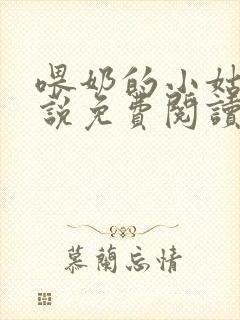 喂奶的小姑
說免費閱讀
慕蘭忘情